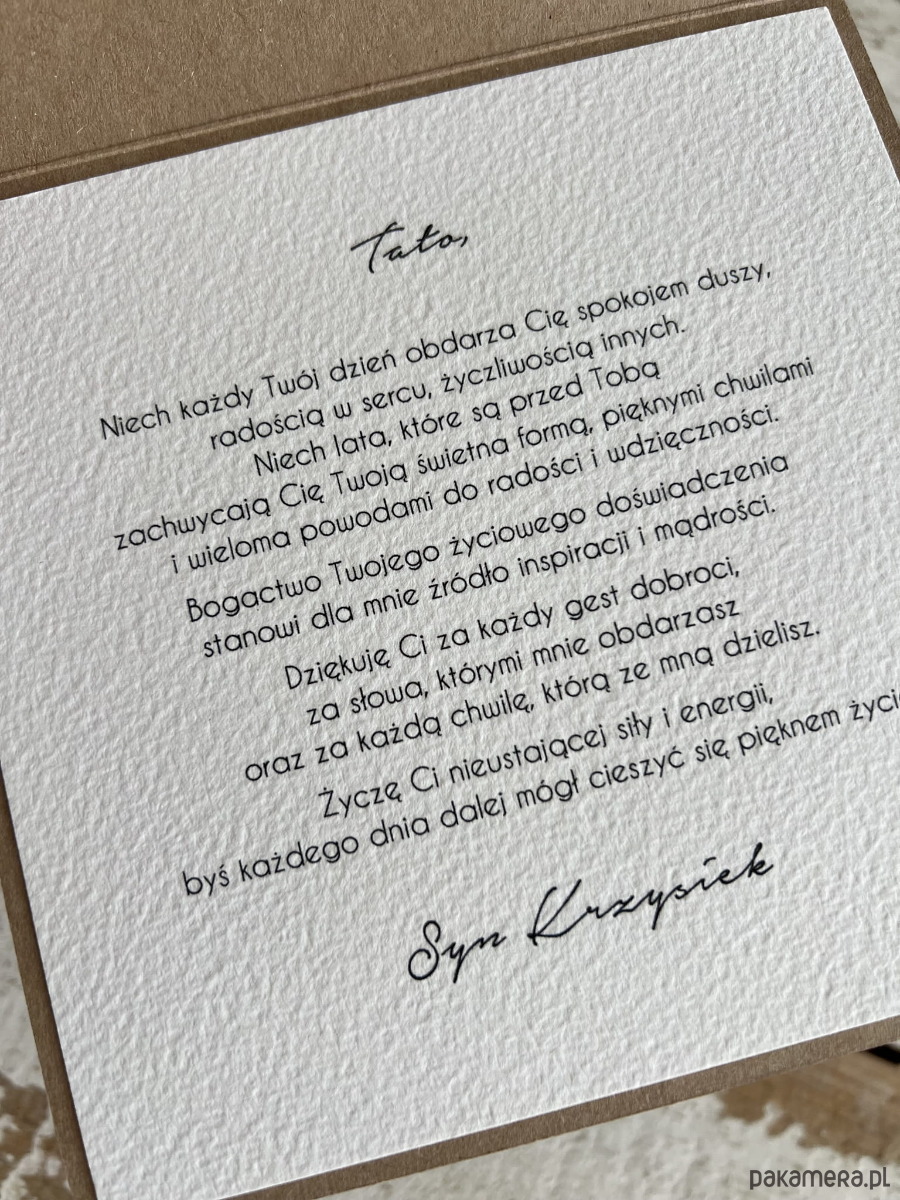 Tato,
Niech każdy Twój dzień obdarza Cię spokojem duszy,
radością w sercu, życzliwością innych.
Niech lata, które są przed Tobą
zachwycają Cię Twoją świetna formą, pięknymi chwilami
i wieloma powodami do radości i wdzięczności.
Bogactwo Twojego życiowego doświadczenia
stanowi dla mnie źródło inspiracji i mądrości.
Dziękuję Ci za każdy gest dobroci,
za słowa, którymi mnie obdarzasz
oraz za każdą chwilę, którą ze mną dzielisz.
Życzę Ci nieustającej siły i energii,
byś każdego dnia dalej mógł cieszyć się pięknem
Syn Krzysiek
pakamera.pl